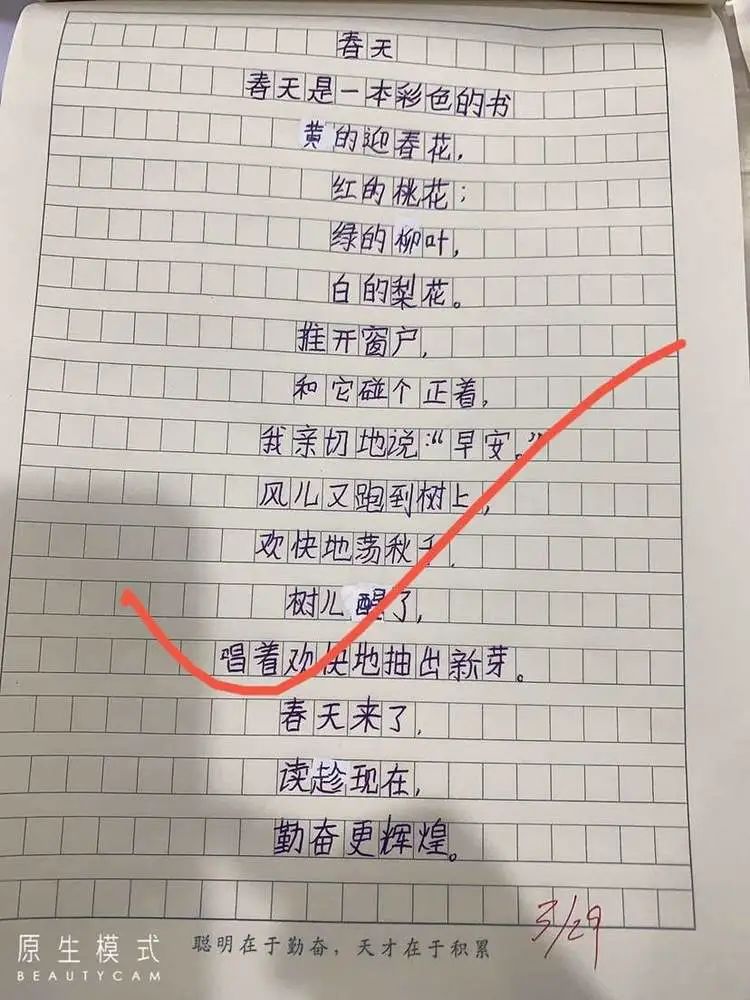 春天
春天是一本彩色的书
黄的迎春花，
红的桃花；
绿的柳叶，
白的梨花。
推开窗户，
和它碰个正着，
我亲切地说：“早安。”
风儿又跑到树上，
欢快地荡秋千，
树儿醒了，
唱着欢快地抽出新芽。
春天来了，
读趁现在，
勤奋更辉煌。
3/29
聪明在于勤奋，天才在于积累
原生模式
BEAUTYCAM